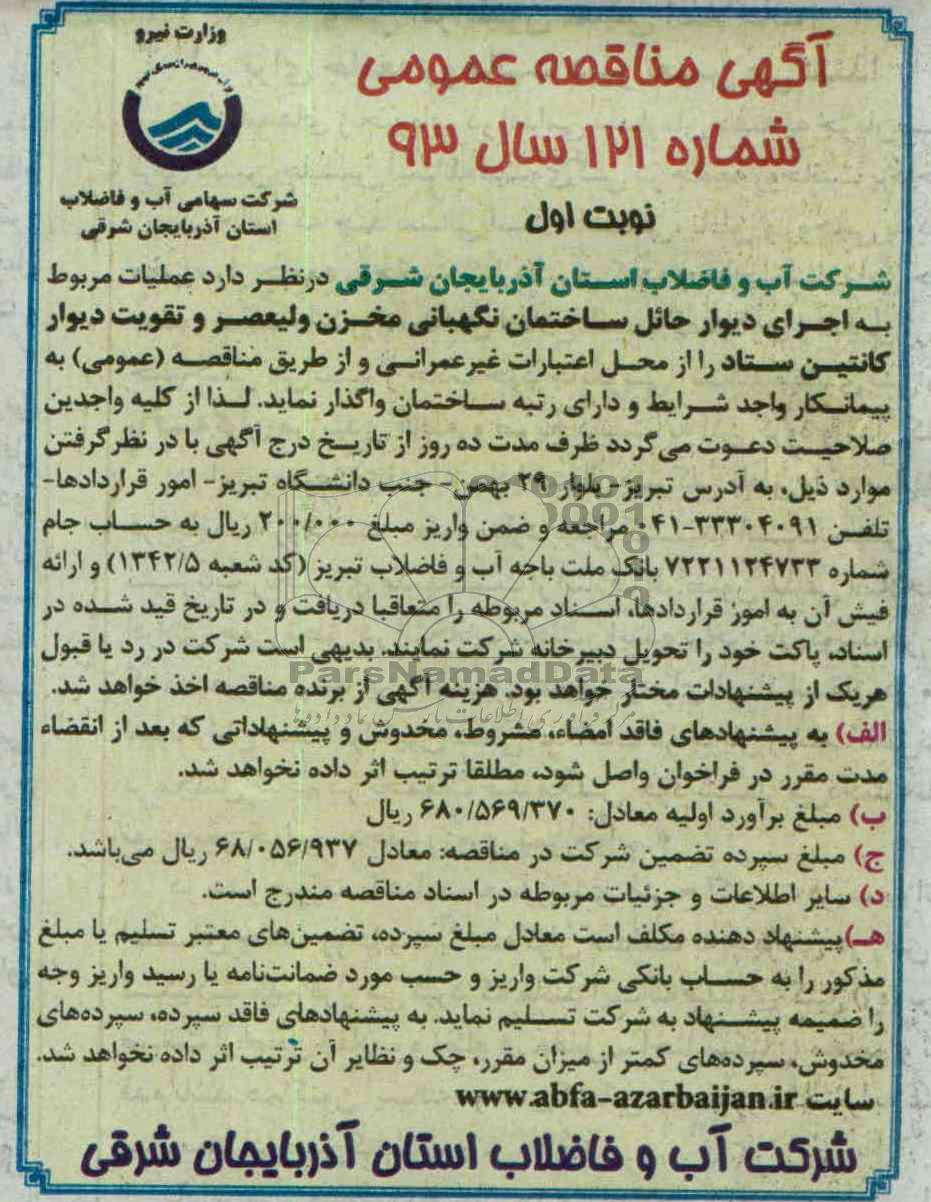 وزارت نیرو
شرکت سهامی آب و فاضلاب
استان آذربایجان شرقی
آگهی مناقصه عمومی
شماره ۱۲۱ سال ۹۳
نوبت اول
شرکت آب و فاضلاب استان آذربایجان شرقی درنظر دارد عملیات مربوط
به اجرای دیوار حائل ساختمان نگهبانی مخزن ولیعصر و تقویت دیوار
کانتین ستاد را از محل اعتبارات غیرعمرانی و از طریق مناقصه (عمومی) به
پیمانکار واجد شرایط و دارای رتبه ساختمان واگذار نماید. لذا از کلیه واجدین
صلاحیت دعوت می‌گردد ظرف مدت ده روز از تاریخ درج آگهی با در نظر گرفتن
موارد ذیل، به آدرس تبریز - بلوار ۲۹ بهمن - جنب دانشگاه تبریز - امور قراردادها-
تلفن ۳۳۳۰۴۰۹۱-۰۴۱ مراجعه و ضمن واریز مبلغ ۲۰۰/۰۰۰ ریال به حساب جام
شماره ۷۲۲۱۱۲۴۷۳۳ بانک ملت باجه آب و فاضلاب تبریز (کد شعبه ۱۳۴۲/۵) و ارائه
فیش آن به امور قراردادها، اسناد مربوطه را متعاقبا دریافت و در تاریخ قید شده در
اسناد، پاکت خود را تحویل دبیرخانه شرکت نمایند. بدیهی است شرکت در رد یا قبول
ParsNamadData
هریک از پیشنهادات مختار خواهد بود. هزینه آگهی از برنده مناقصه اخذ خواهد شد.
الف) به پیشنهادهای فاقد امضاء، مشروط، مخدوش و پیشنهاداتی که بعد از انقضاء
مدت مقرر در فراخوان واصل شود، مطلقا ترتیب اثر داده نخواهد شد.
ب) مبلغ برآورد اولیه معادل: ۶۸۰/۵۶۹/۳۷۰ ریال
ج) مبلغ سپرده تضمین شرکت در مناقصه: معادل ۶۸/۰۵۶/۹۳۷ ریال می‌باشد.
د) سایر اطلاعات و جزئیات مربوطه در اسناد مناقصه مندرج است.
هـ)پیشنهاد دهنده مکلف است معادل مبلغ سپرده، تضمین‌های معتبر تسلیم یا مبلغ
مذکور را به حساب بانکی شرکت واریز و حسب مورد ضمانت‌نامه یا رسید واریز وجه
را ضمیمه پیشنهاد به شرکت تسلیم نماید. به پیشنهادهای فاقد سپرده، سپرده‌های
مخدوش، سپرده‌های کمتر از میزان مقرر، چک و نظایر آن ترتیب اثر داده نخواهد شد.
سایت www.abfa-azarbaijan.ir
شرکت آب و فاضلاب استان آذربایجان شرقی